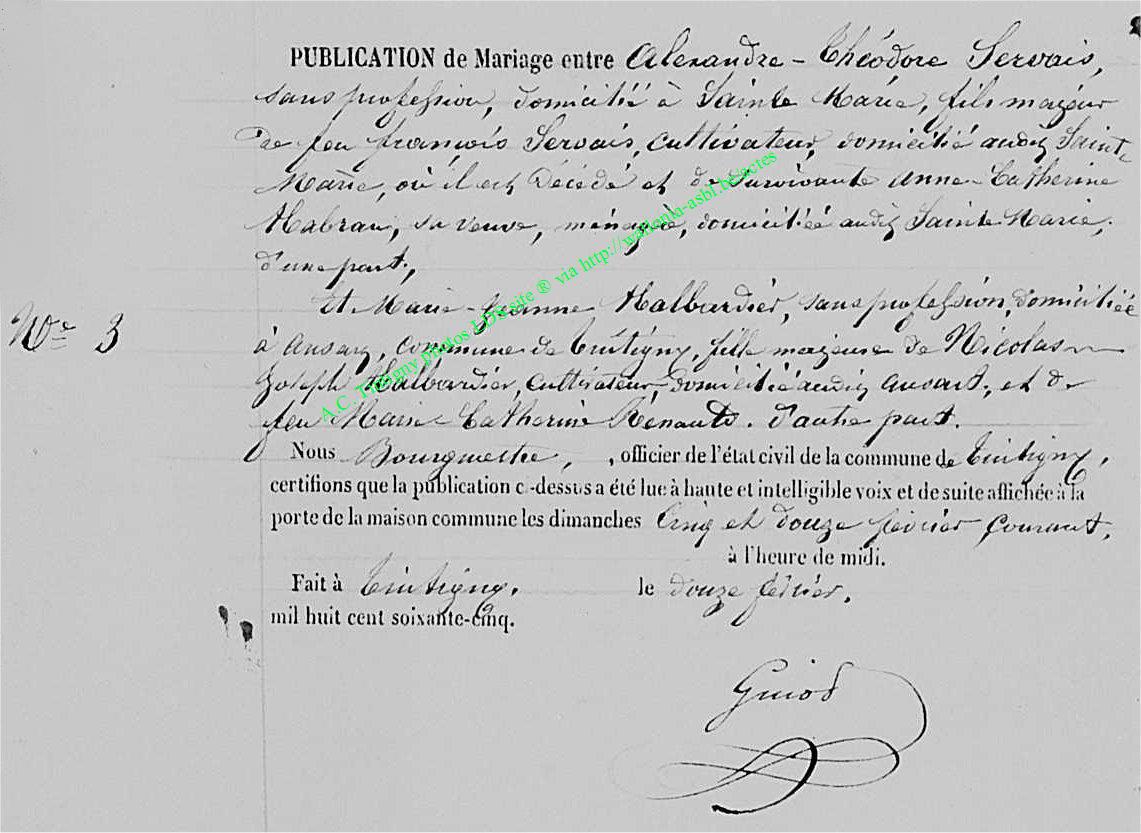 PUBLICATION de Mariage entre Alexandre - Théodore Servais,
sans profession, domicilié à Sainte Marie, fils majeur
de feu françois Servais, cultivateur, domicilié audit Sainte
Marie, où il est Décédé et de survivante Anne-Catherine
Habran, sa veuve, ménagère, domiciliée audit Sainte Marie,
d'une part,
Et Marie-Jeanne Halbardier, sans profession, domiciliée
N° 3
à Ansart, commune de Tintigny, fille majeure de Nicolas
Joseph Halbardier, cultivateur domicilié audit ansart, et de
feu Marie Catherine Rénauld. d'autre part.
Nous Bourgmestre, , officier de l'état civil de la commune de Tintigny,
certifions que la publication ci-dessus a été lue à haute et intelligible voix et de suite affichée à la
porte de la maison commune les dimanches Cinq et douze février Courant,
à l'heure de midi.
Fait à Tintigny, le douze février,
mil huit cent soixante-cinq.
Guiod
A.C. Tintigny photos LD's site ® via http://wallonia-asbl.be/actes